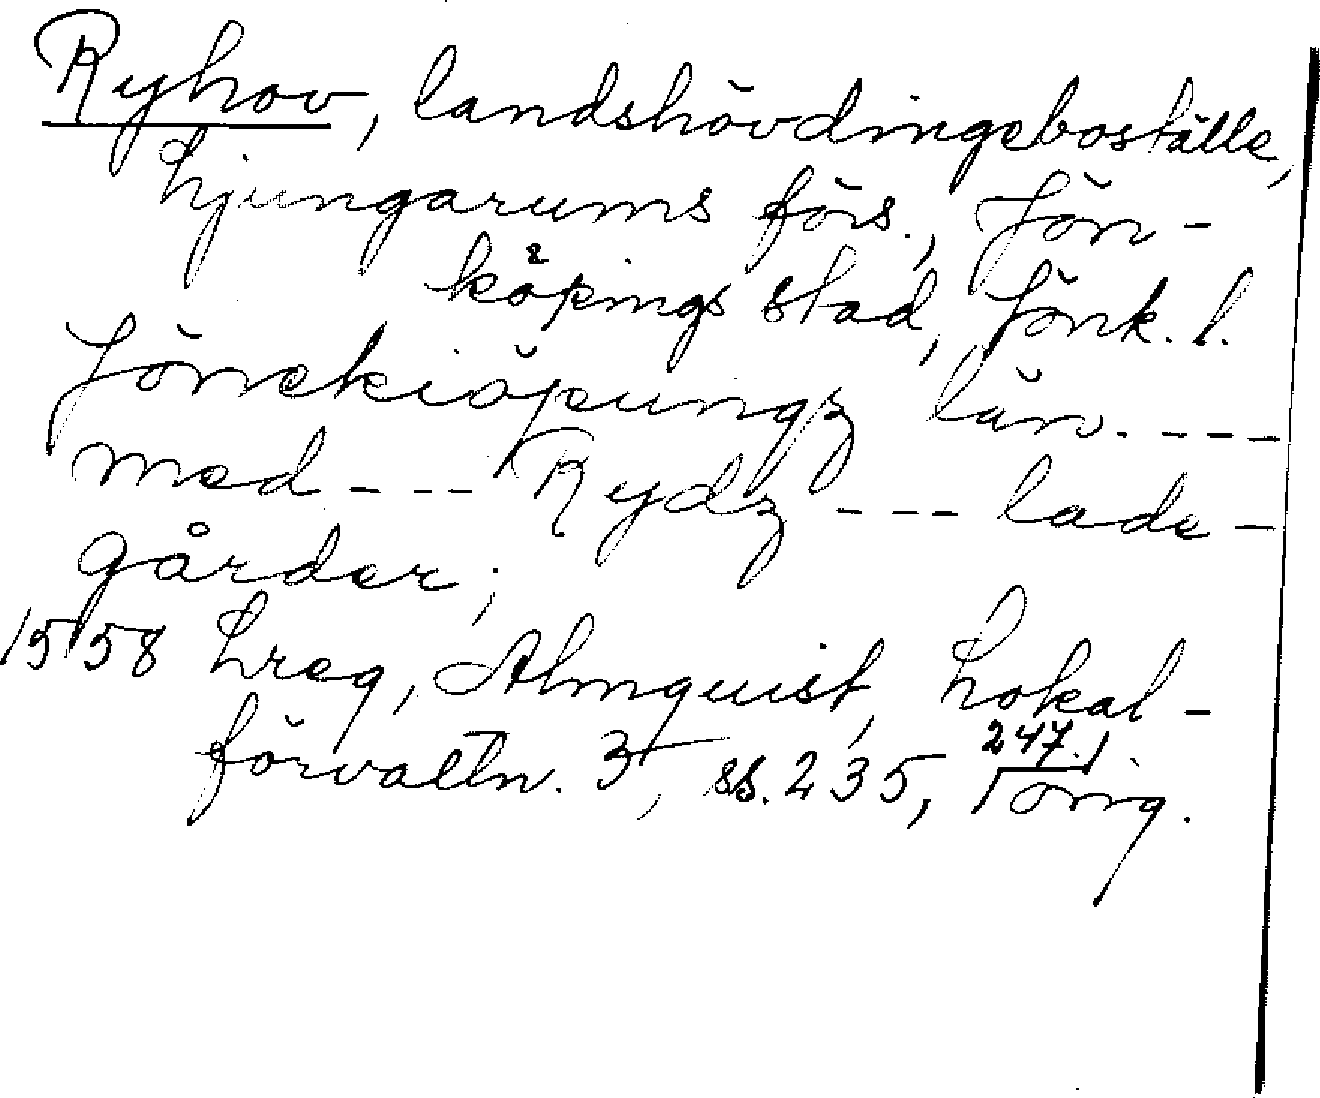 Ryhov, landshövdingeboställe,
Ljungarums förs., Jön-
köpings stad, Jönk. l.
Jönekiöpungz län. ----
med --- Rydz --- lade-
gårder;
1558 Lreg, Almquist, Lokal-
förvaltn. 3, ss. 235, 247.,
örig.